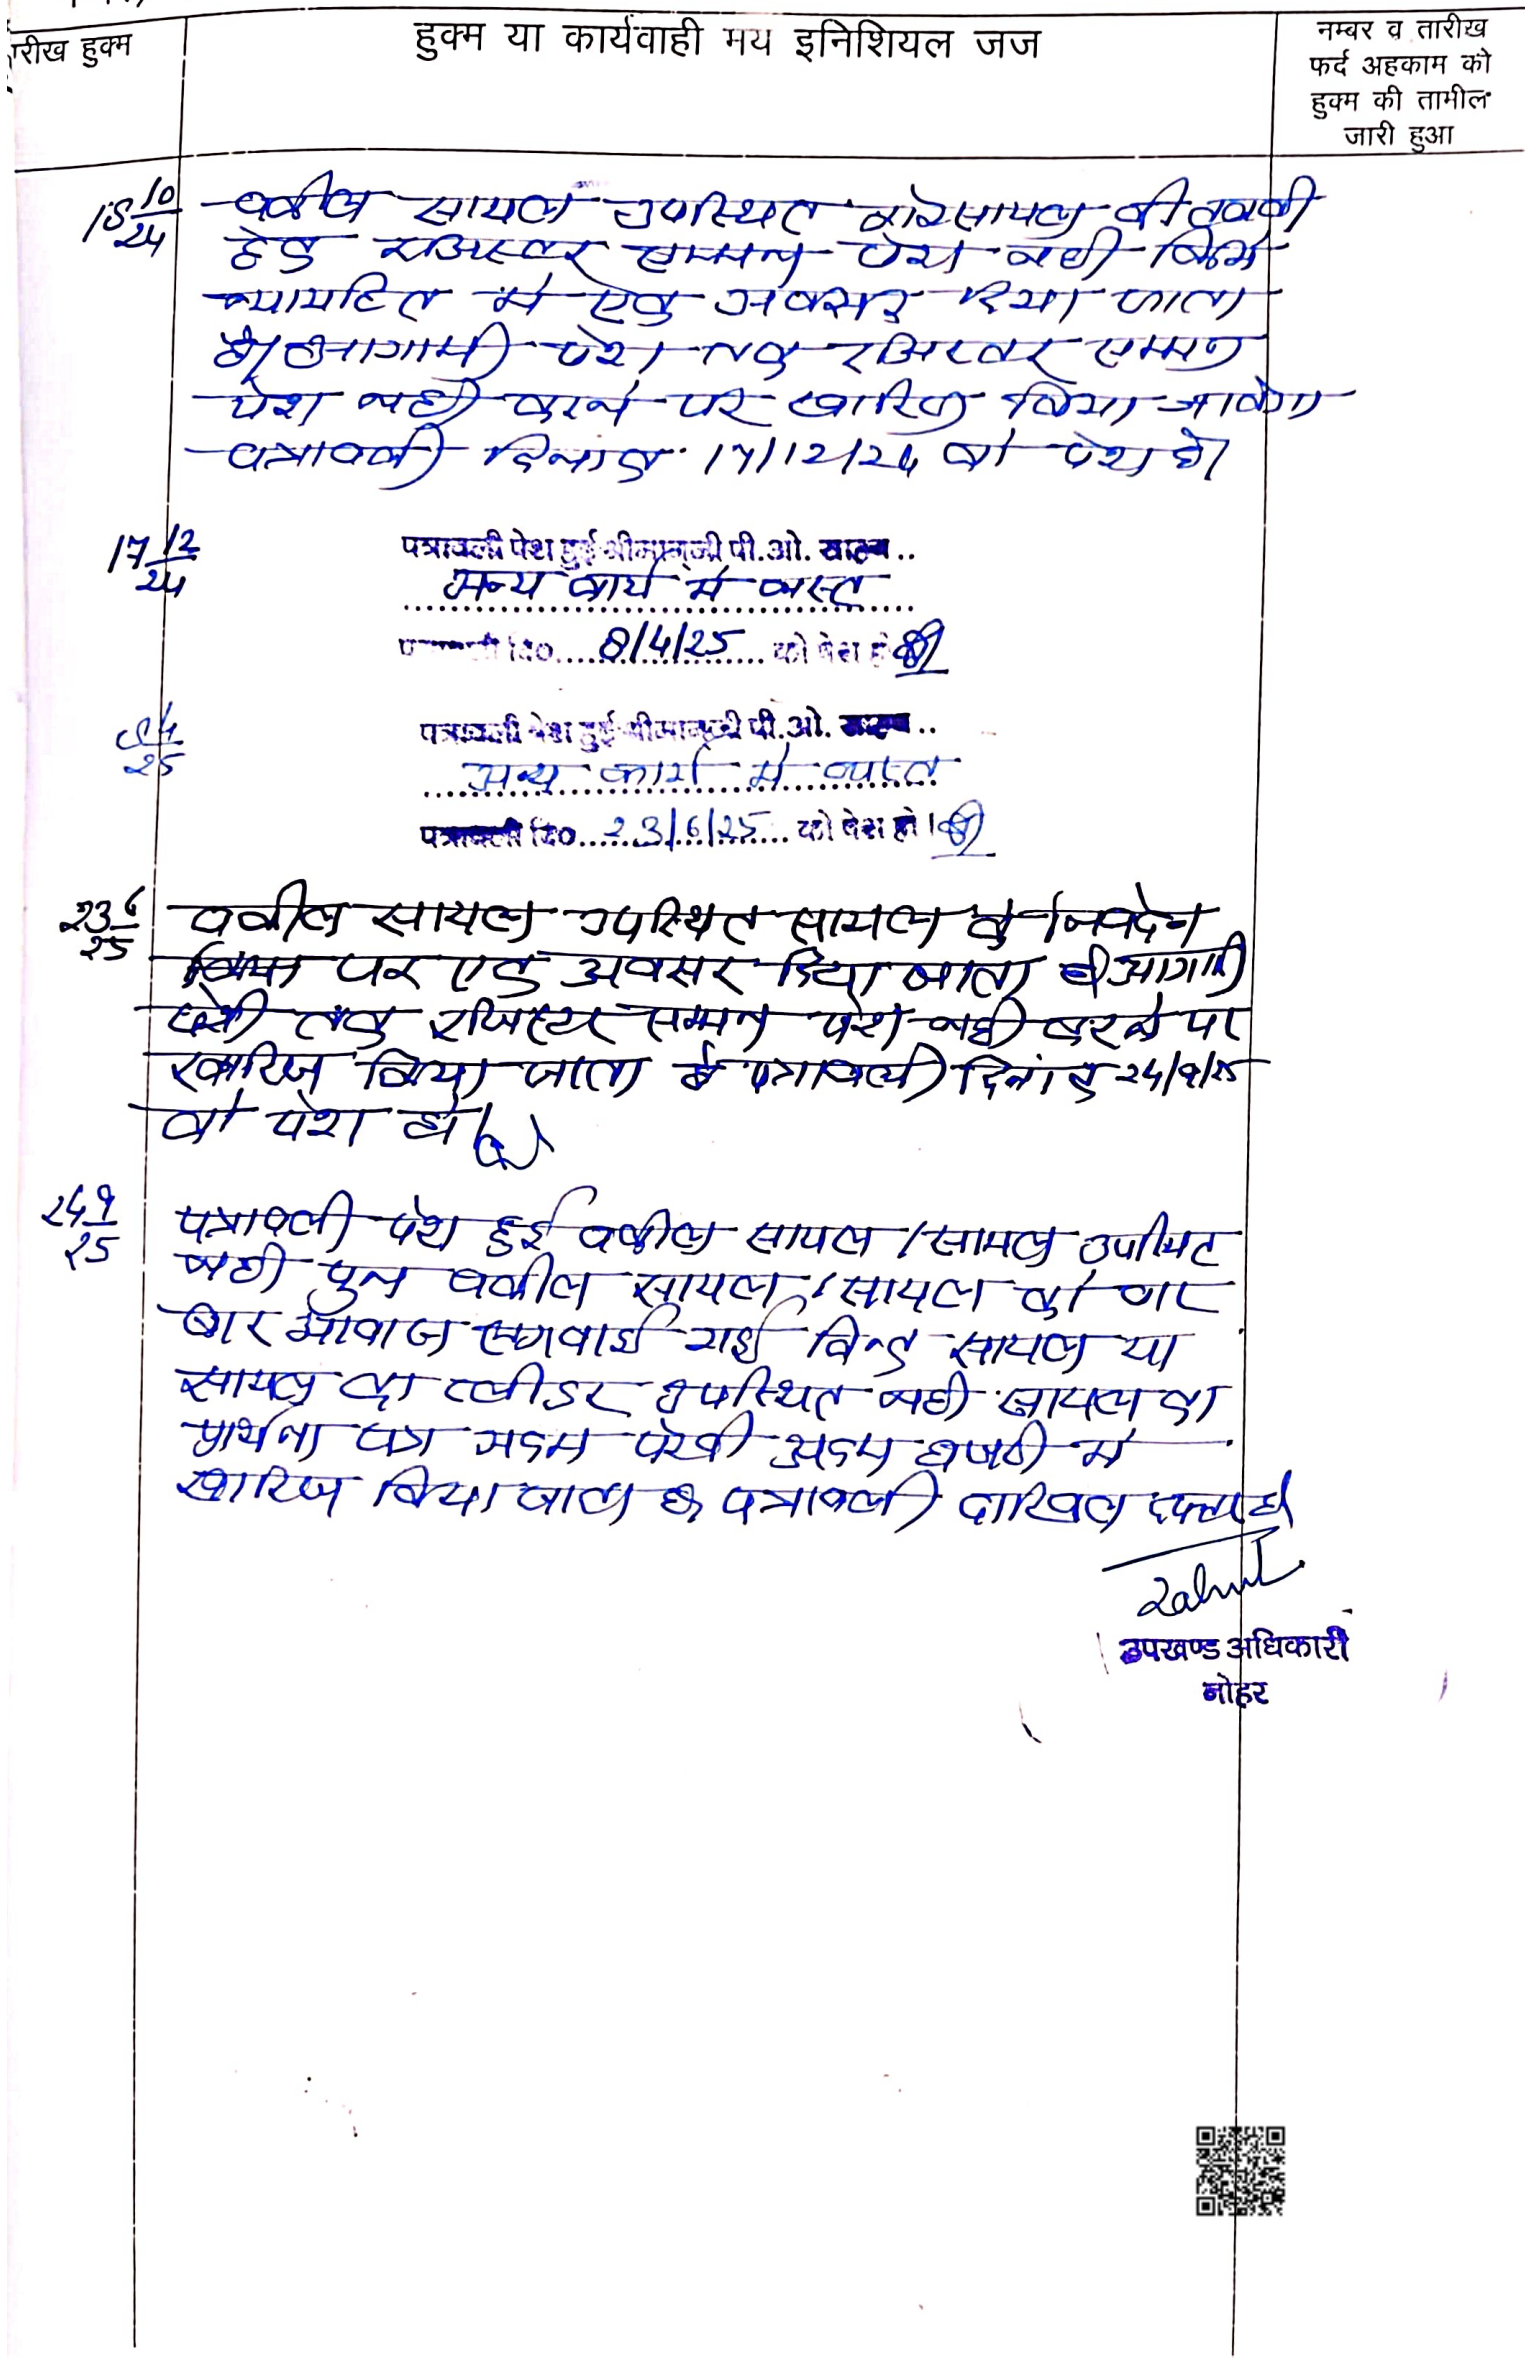 तारीख हुक्म
हुक्म या कार्यवाही मय इनिशियल जज
नम्बर व तारीख
फर्द अहकाम को
हुक्म की तामील
जारी हुआ
18/10/24
वकील सायल उपस्थित गैरसायल की तलबी
हेतु रजिस्टर सम्मन पेश नही किये
न्यायहित मे एक अवसर दिया जाता
है। आगामी पेशी तक रजिस्टर सम्मन
पेश नही करने पर खारिज किया जावेगा
पत्रावली दिनांक 17/12/24 को पेश हो।
17/12/24
पत्रावली पेश हुई श्रीमान्जी पी.ओ. साहब..
अन्य कार्य मे व्यस्त
पत्रावली दि0....8/4/25.... को पेश हो
8/4/25
पत्रावली पेश हुई श्रीमान्जी पी.ओ. साहब..
अन्य कार्य मे व्यस्त
पत्रावली दि0....23/6/25.... को पेश हो।
23/6/25
वकील सायल उपस्थित सायल के निवेदन
किया पर एक अवसर दिया जाता है आगामी
पेशी तक रजिस्टर सम्मन पेश नही करने पर
खारिज किया जाता है पत्रावली दिनांक 24/9/25
को पेश हो।
24/9/25
पत्रावली पेश हुई वकील सायल/सायल उपस्थित
नही पुन वकील सायल/सायल को बार
बार आवाज लगवाई गई किन्तु सायल या
सायल का प्लीडर उपस्थित नही सायल का
प्रार्थना पत्र अदम पैरवी अदम हाजरी में
खारिज किया जाता है पत्रावली दाखिल दफ्तर हो
उपखण्ड अधिकारी
नोहर